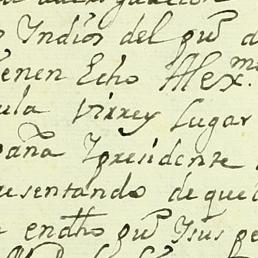 Indios del qu.e
enen Echo Alex.mo
ula Virrey Lugar
paña Ypresidente
esentando de que
endho qu.e Ysus